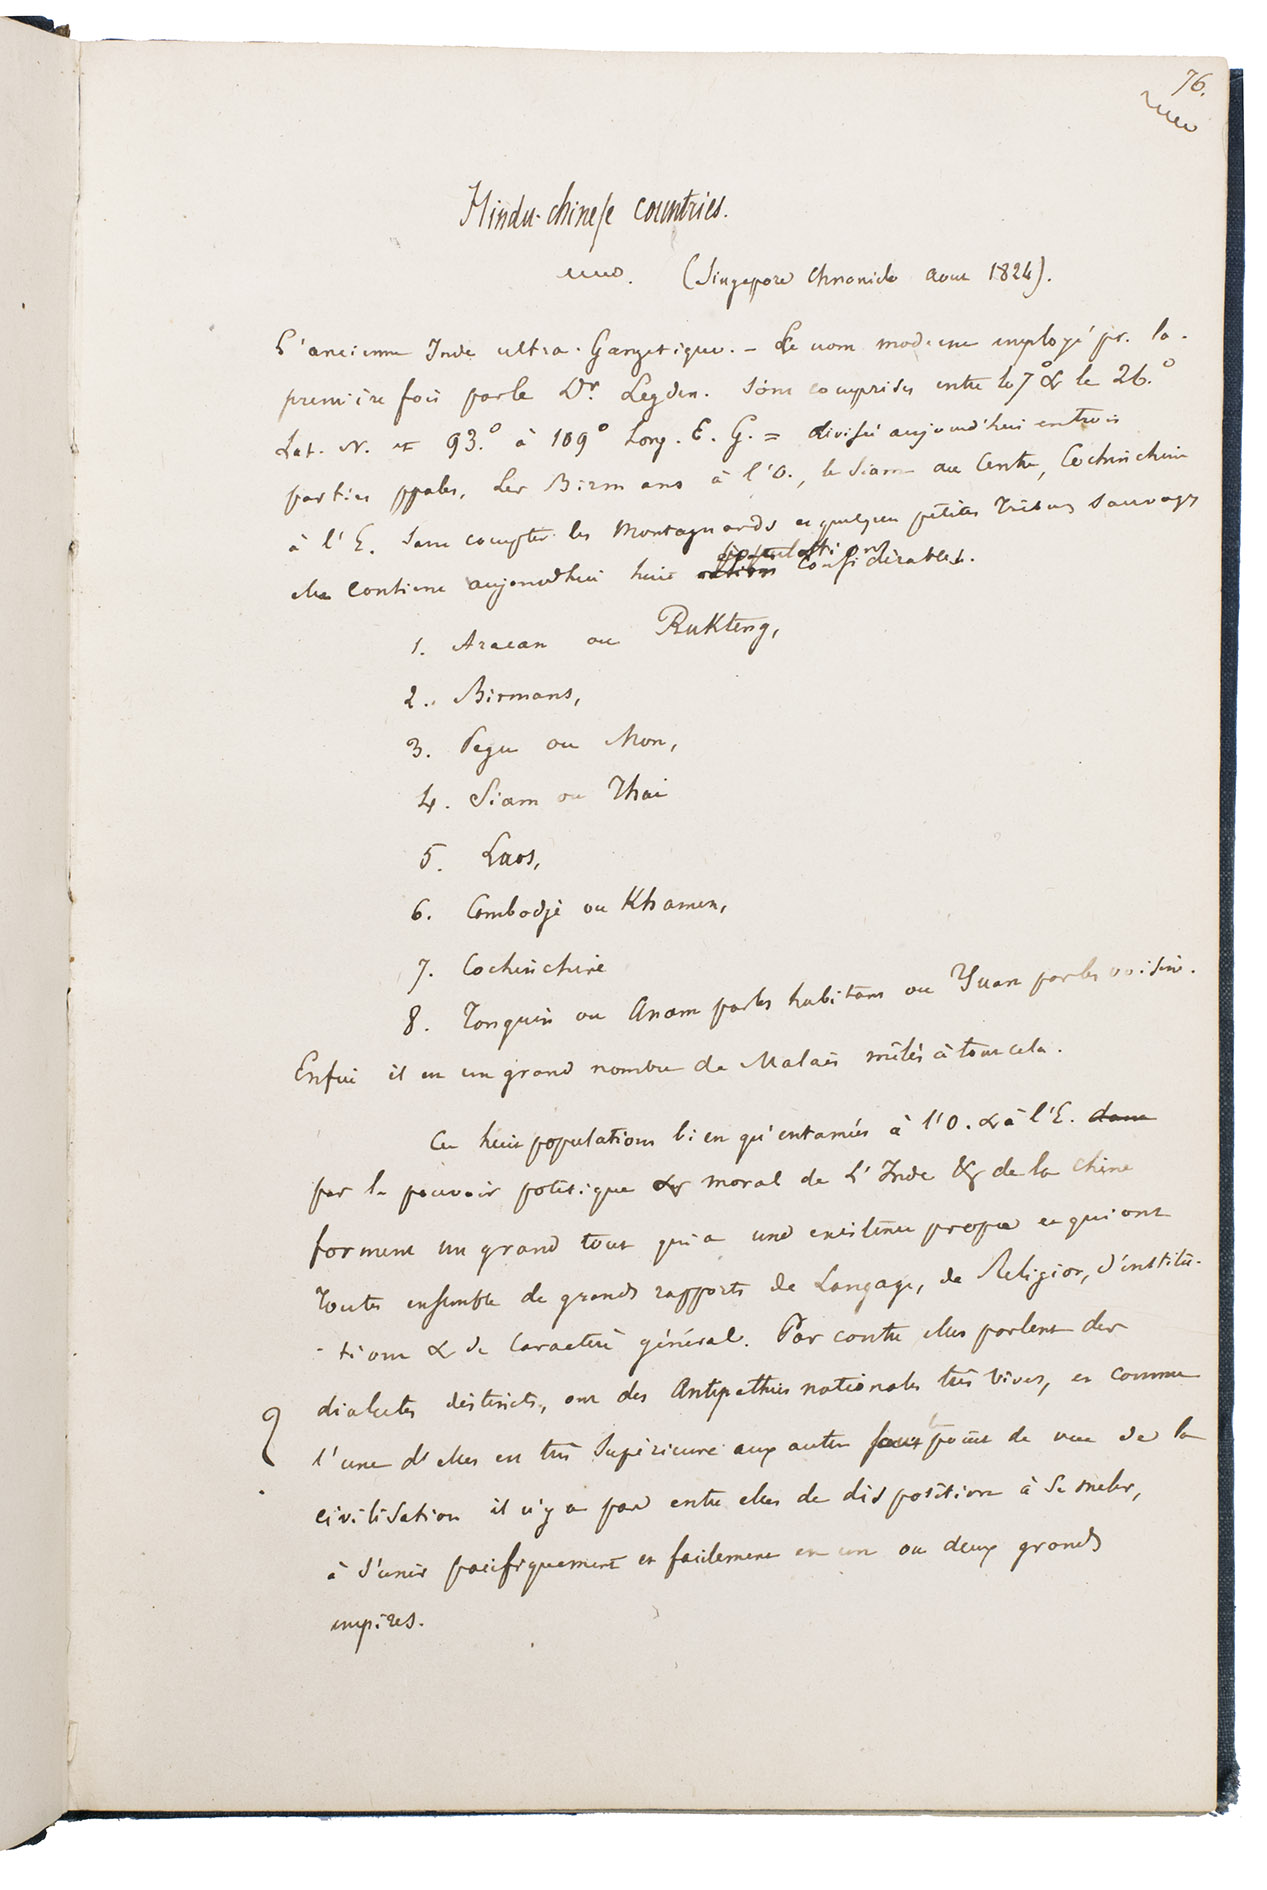 76.
Hindu-chinese countries.
(Singapore Chronicle aout 1824).
L'ancienne Inde ultra-Gangetique. - Le nom moderne employé pr. la
première fois par le Dr. Leyden. Sont comprises entre le 7° & le 26.°
Lat. N. et 93.° à 109° Long. E. G. = divisée aujourd'hui en trois
parties ppales, Les Birmans à l'O., le Siam au Centre, Cochinchine
à l'E. Sans compter les Montagnards et quelques petites Tribus sauvages
elle contient aujourdhui huit populations considérables.
1. Aracan ou RukTeng,
2. Birmans,
3. Pegu ou Mon,
4. Siam ou Thai
5. Laos,
6. Cambodje ou Khamen,
7. Cochinchine
8. Tonquin ou Anam par les habitans ou Yuan par les voisins.
Enfin il est un grand nombre de Malais mêlés à tout cela.
Ces huit populations bien qu'entamées à l'O. & à l'E. dans
par le pouvoir politique & moral de L'Inde & de la Chine
forment un grand tout qui a une existence propre et qui ont
toutes ensemble de grands rapports de Langage, de Religion, d'institu-
-tions & de Caractère général. Par contre elles parlent des
dialectes distincts, ont des Antipathies nationales très vives, et comme
l'une d'elles est très supérieure aux autres sous point de vue de la
civilisation il n'y a pas entre elles de disposition à se meler,
à s'unir pacifiquement et facilement en un ou deux grands
empires.